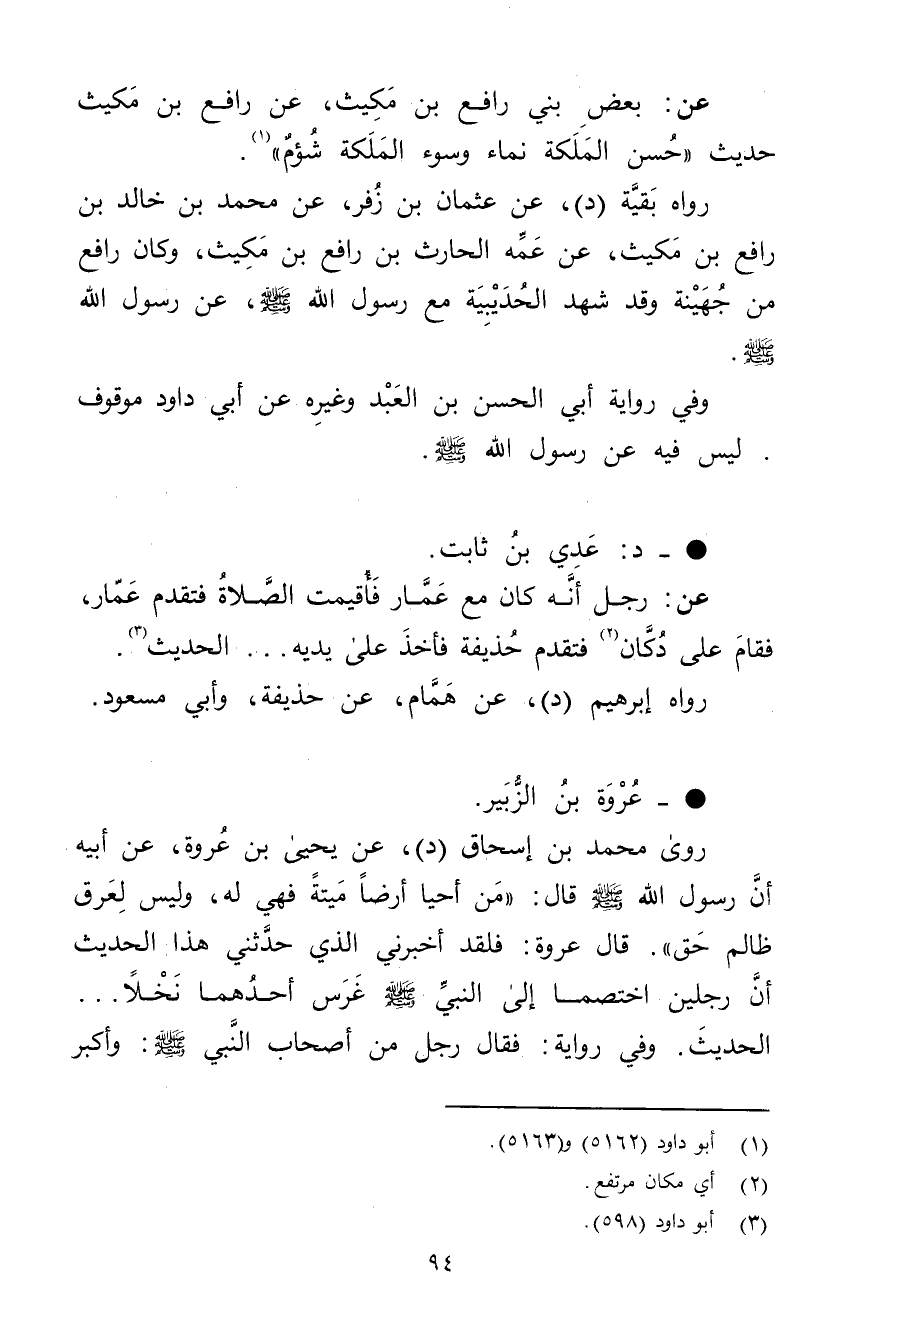 عن: بعضِ بني رافع بن مَكِيث، عن رافع بن مَكيث
حديث «حُسن المَلَكة نماء وسوء المَلَكة شُؤمٌ»(١).
رواه بَقيَّة (د)، عن عثمان بن زُفر، عن محمد بن خالد بن
رافع بن مَكيث، عن عَمِّه الحارث بن رافع بن مَكِيث، وكان رافع
من جُهَيْنة وقد شهد الحُدَيْبِيَة مع رسول الله ﷺ، عن رسول الله
ﷺ.
وفي رواية أبي الحسن بن العَبْد وغيرِه عن أبي داود موقوف
. ليس فيه عن رسول الله ﷺ.
● ـ د: عَدِي بنُ ثابت.
عن: رجل أنَّه كان مع عَمَّار فَأُقيمت الصَّلاةُ فتقدم عَمّار،
فقامَ على دُكَّان(٢) فتقدم حُذيفة فأخذَ علىٰ يديه... الحديث(٣).
رواه إبرهيم (د)، عن هَمَّام، عن حذيفة، وأبي مسعود.
● ـ عُرْوَة بنُ الزُّبَير.
روىٰ محمد بن إسحاق (د)، عن يحيىٰ بن عُروة، عن أبيه
أنَّ رسول الله ﷺ قال: «مَن أحيا أرضاً مَيتةً فهي له، وليس لِعَرق
ظالم حَق». قال عروة: فلقد أخبرني الذي حدَّثني هذا الحديث
أنَّ رجلين اختصما إلىٰ النبيِّ ﷺ غَرَس أحدُهما نَخْلاً...
الحديثَ. وفي رواية: فقال رجل من أصحاب النَّبي ﷺ: وأكبر
(١) أبو داود (٥١٦٢) و(٥١٦٣).
(٢) أي مكان مرتفع.
(٣) أبو داود (٥٩٨).
٩٤